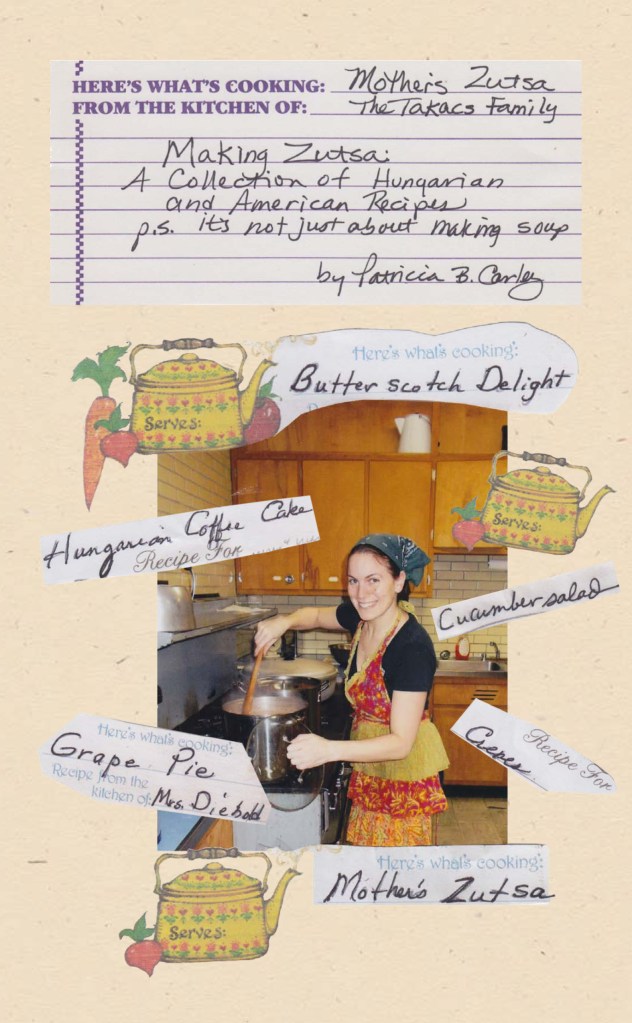 HERE'S WHAT'S COOKING: Mother's Zutsa
FROM THE KITCHEN OF: The Takacs Family
Making Zutsa:
A Collection of Hungarian
and American Recipes
p.s. it's not just about making soup
by Patricia B. Carley
Here's what's cooking:
Butterscotch Delight
Serves:
Serves:
Hungarian Coffee Cake
Recipe For
Cucumber salad
Here's what's cooking:
Grape Pie
Recipe from the
kitchen of: Mrs. Diebold
Recipe For
Crepes
Here's what's cooking:
Mother's Zutsa
Serves: